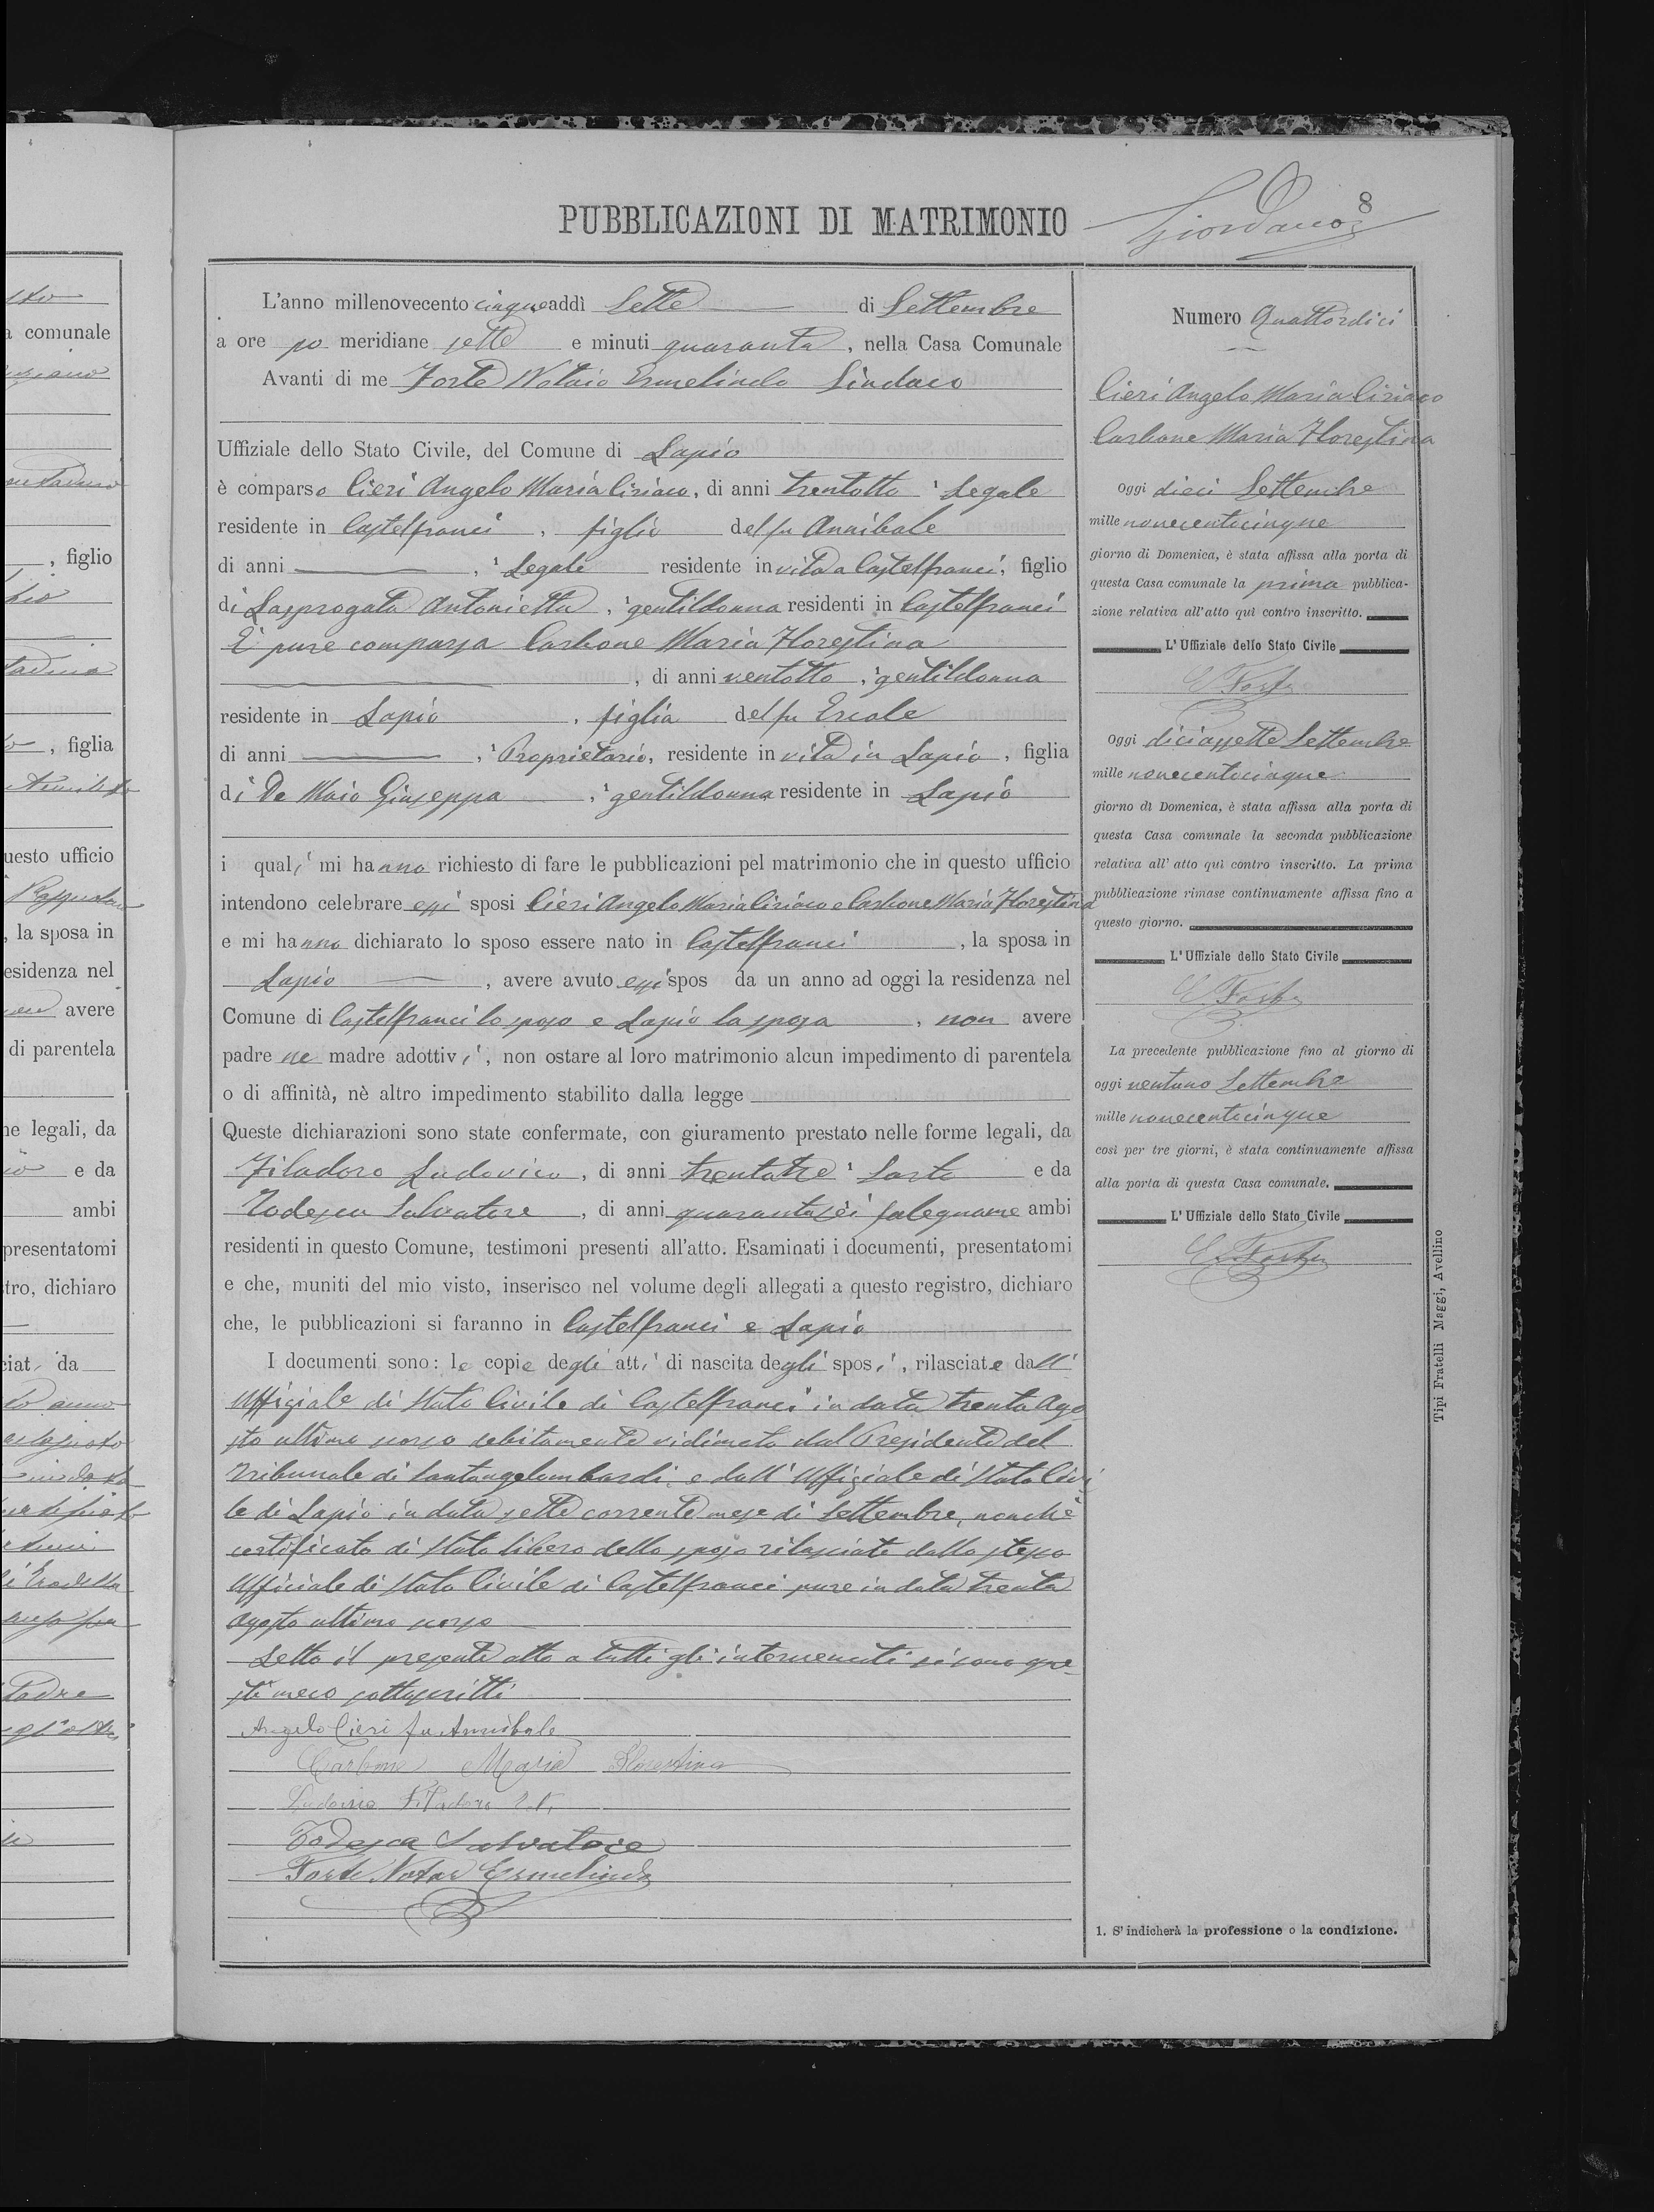 8
PUBBLICAZIONI DI MATRIMONIO
Giordano
L'anno millenovecento cinque addì Sette di Settembre
a ore po meridiane sette e minuti quaranta, nella Casa Comunale
Avanti di me Forte Notaio Ermelindo Sindaco
Uffiziale dello Stato Civile, del Comune di Lapio
è comparso Cieri Angelo Maria Ciriaco, di anni trentotto ¹ Legale
residente in Castelfranci, figlio del fu Annibale
di anni , ¹ Legale residente in vita a Castelfranci, figlio
di Lasprogata Antonietta, ¹ gentildonna residenti in Castelfranci
È pure comparsa Carbone Maria Florestina
, di anni ventotto, ¹ gentildonna
residente in Lapio, figlia del fu Ercole
di anni , ¹ Proprietario, residente in vita in Lapio, figlia
di De Maio Giuseppa, ¹ gentildonna residente in Lapio
i quali mi hanno richiesto di fare le pubblicazioni pel matrimonio che in questo ufficio
intendono celebrare essi sposi Cieri Angelo Maria Ciriaco e Carbone Maria Florestina
e mi hanno dichiarato lo sposo essere nato in Castelfranci, la sposa in
Lapio, avere avuto essi spos da un anno ad oggi la residenza nel
Comune di Castelfranci lo sposo e Lapio la sposa, non avere
padre ne madre adottivi, non ostare al loro matrimonio alcun impedimento di parentela
o di affinità, nè altro impedimento stabilito dalla legge
Queste dichiarazioni sono state confermate, con giuramento prestato nelle forme legali, da
Filadoro Ludovico, di anni trentatre ¹ Sarto e da
Todesca Salvatore, di anni quarantasei falegname ambi
residenti in questo Comune, testimoni presenti all'atto. Esaminati i documenti, presentatomi
e che, muniti del mio visto, inserisco nel volume degli allegati a questo registro, dichiaro
che, le pubblicazioni si faranno in Castelfranci e Lapio
I documenti sono: le copie degli atti di nascita degli sposi, rilasciate dall'
Uffiziale di Stato Civile di Castelfranci in data trenta Ago
sto ultimo scorso debitamente vidimata dal Presidente del
Tribunale di Santangelombardi e dall' Uffiziale di Stato Civi
le di Lapio in data sette corrente mese di Settembre, nonchè
certificato di Stato libero dello sposo rilasciato dallo stesso
Ufficiale di Stato Civile di Castelfranci pure in data trenta
Agosto ultimo scorso
Letto il presente atto a tutti gli intervenuti si sono que
sti meco sottoscritti
Angelo Cieri fu Annibale
Carbone Maria Florestina
Ludovico Filadoro
Todesca Salvatore
Forte Notar Ermelindo
Numero Quattordici
Cieri Angelo Maria Ciriaco
Carbone Maria Florestina
Oggi dieci Settembre
mille novecentocinque
giorno di Domenica, è stata affissa alla porta di
questa Casa comunale la prima pubblica-
zione relativa all'atto quì contro inscritto.
L'Uffiziale dello Stato Civile
E Forte
Oggi diciassette Settembre
mille novecentocinque
giorno di Domenica, è stata affissa alla porta di
questa Casa comunale la seconda pubblicazione
relativa all'atto quì contro inscritto. La prima
pubblicazione rimase continuamente affissa fino a
questo giorno.
L'Uffiziale dello Stato Civile
E Forte
La precedente pubblicazione fino al giorno di
oggi ventuno Settembre
mille novecentocinque
così per tre giorni, è stata continuamente affissa
alla porta di questa Casa comunale.
L'Uffiziale dello Stato Civile
E. Forte
1. S'indicherà la professione o la condizione.
Tipi Fratelli Maggi, Avellino
a comunale
, figlio
, figlia
uesto ufficio
, la sposa in
esidenza nel
avere
di parentela
ne legali, da
e da
ambi
presentatomi
tro, dichiaro
ciat da